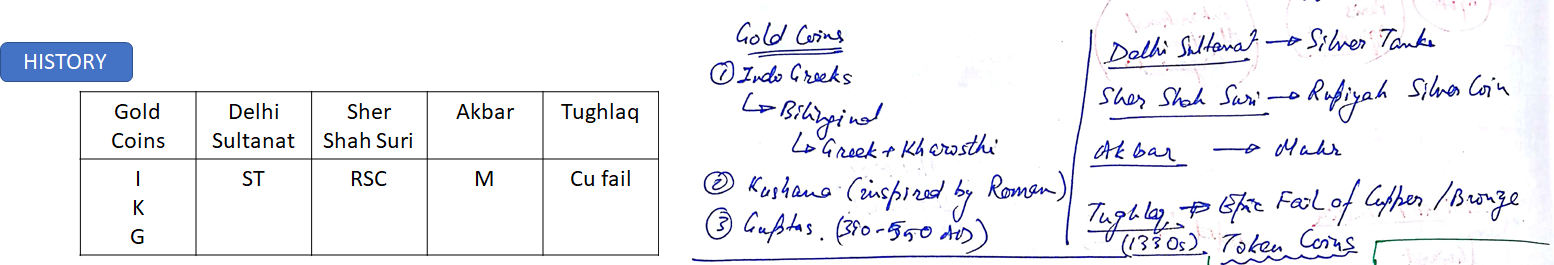 HISTORY
Gold Coins
Delhi Sultanat
Sher Shah Suri
Akbar
Tughlaq
I K G
ST
RSC
M
Cu fail
Gold Coins
① Indo Greeks
↳ Bilinginal
↳ Greek + Kharosthi
② Kushana (inspired by Roman)
③ Guptas. (350-550 AD)
Delhi Sultanat → Silver Tanka
Sher Shah Suri → Rupiyah Silver Coin
Akbar → Mahr
Tughlaq → Epic Fail of Copper / Bronze
(1330s) Token Coins